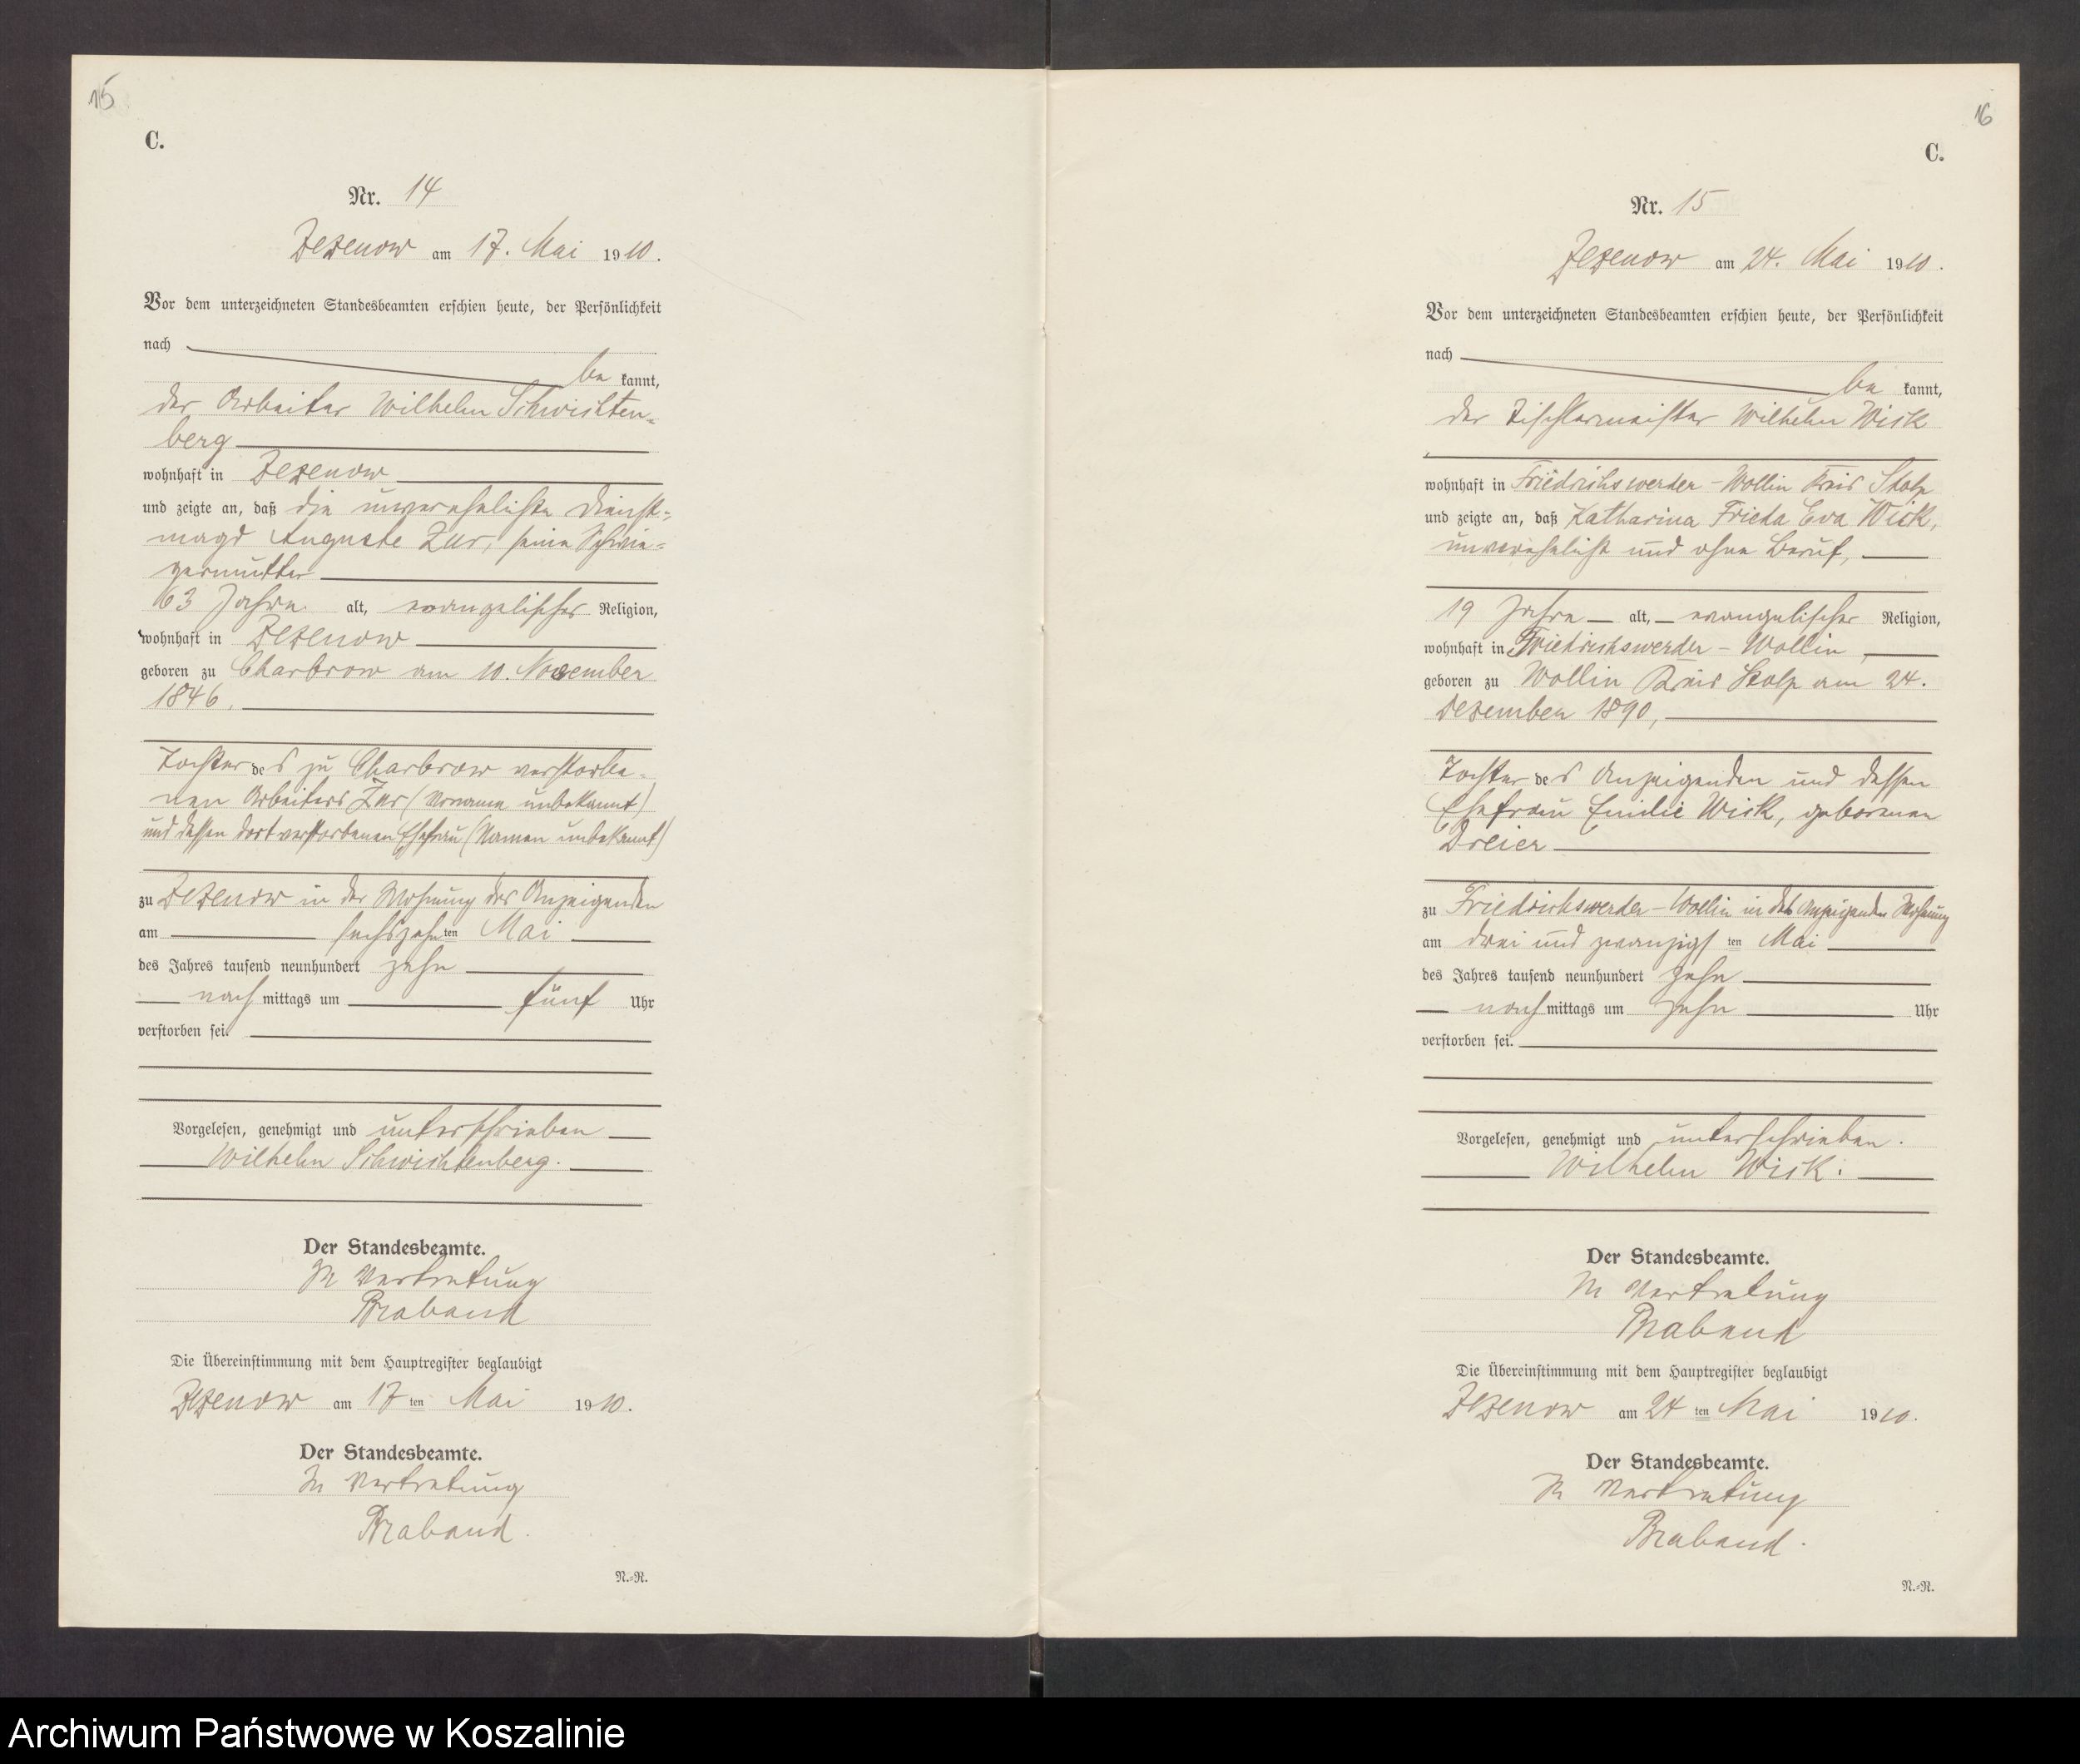 15
C.
Nr. 14
Zezenow am 17. Mai 1910.
Vor dem unterzeichneten Standesbeamten erschien heute, der Persönlichkeit
nach
be kannt,
der Arbeiter Wilhelm Schwichten-
berg
wohnhaft in Zezenow
und zeigte an, daß die unverehelichte Dienst-
magd Auguste Zur, seine Schwie-
germutter
63 Jahre alt, evangelischer Religion,
wohnhaft in Zezenow
geboren zu Charbrow am 10. November
1846,
Tochter des zu Charbrow verstorbe-
nen Arbeiters Zur (Vorname unbekannt)
und dessen dort verstorbenen Ehefrau (Namen unbekannt)
zu Zezenow in der Wohnung des Anzeigenden
am sechszehnten Mai
des Jahres tausend neunhundert zehn
nachmittags um fünf Uhr
verstorben sei.
Vorgelesen, genehmigt und unterschrieben
Wilhelm Schwichtenberg.
Der Standesbeamte.
In Vertretung
Braband
Die Übereinstimmung mit dem Hauptregister beglaubigt
Zezenow am 17ten Mai 1910.
Der Standesbeamte.
In Vertretung
Braband.
N.=R.
16
C.
Nr. 15
Zezenow am 24. Mai 1910.
Vor dem unterzeichneten Standesbeamten erschien heute, der Persönlichkeit
nach
be kannt,
der Tischlermeister Wilhelm Wick
wohnhaft in Friedrichswerder - Wollin Kreis Stolp
und zeigte an, daß Katharina Frieda Eva Wick,
unverehelicht und ohne Beruf,
19 Jahre alt, evangelischer Religion,
wohnhaft in Friedrichswerder - Wollin,
geboren zu Wollin Kreis Stolp am 24.
Dezember 1890,
Tochter des Anzeigenden und dessen
Ehefrau Emilie Wick, geborenen
Dreier
zu Friedrichswerder - Wollin in des Anzeigenden Wohnung
am drei und zwanzigsten Mai
des Jahres tausend neunhundert zehn
nachmittags um zehn Uhr
verstorben sei.
Vorgelesen, genehmigt und unterschrieben.
Wilhelm Wick.
Der Standesbeamte.
In Vertretung
Braband
Die Übereinstimmung mit dem Hauptregister beglaubigt
Zezenow am 24ten Mai 1910.
Der Standesbeamte.
In Vertretung
Braband.
N.=R.
Archiwum Państwowe w Koszalinie